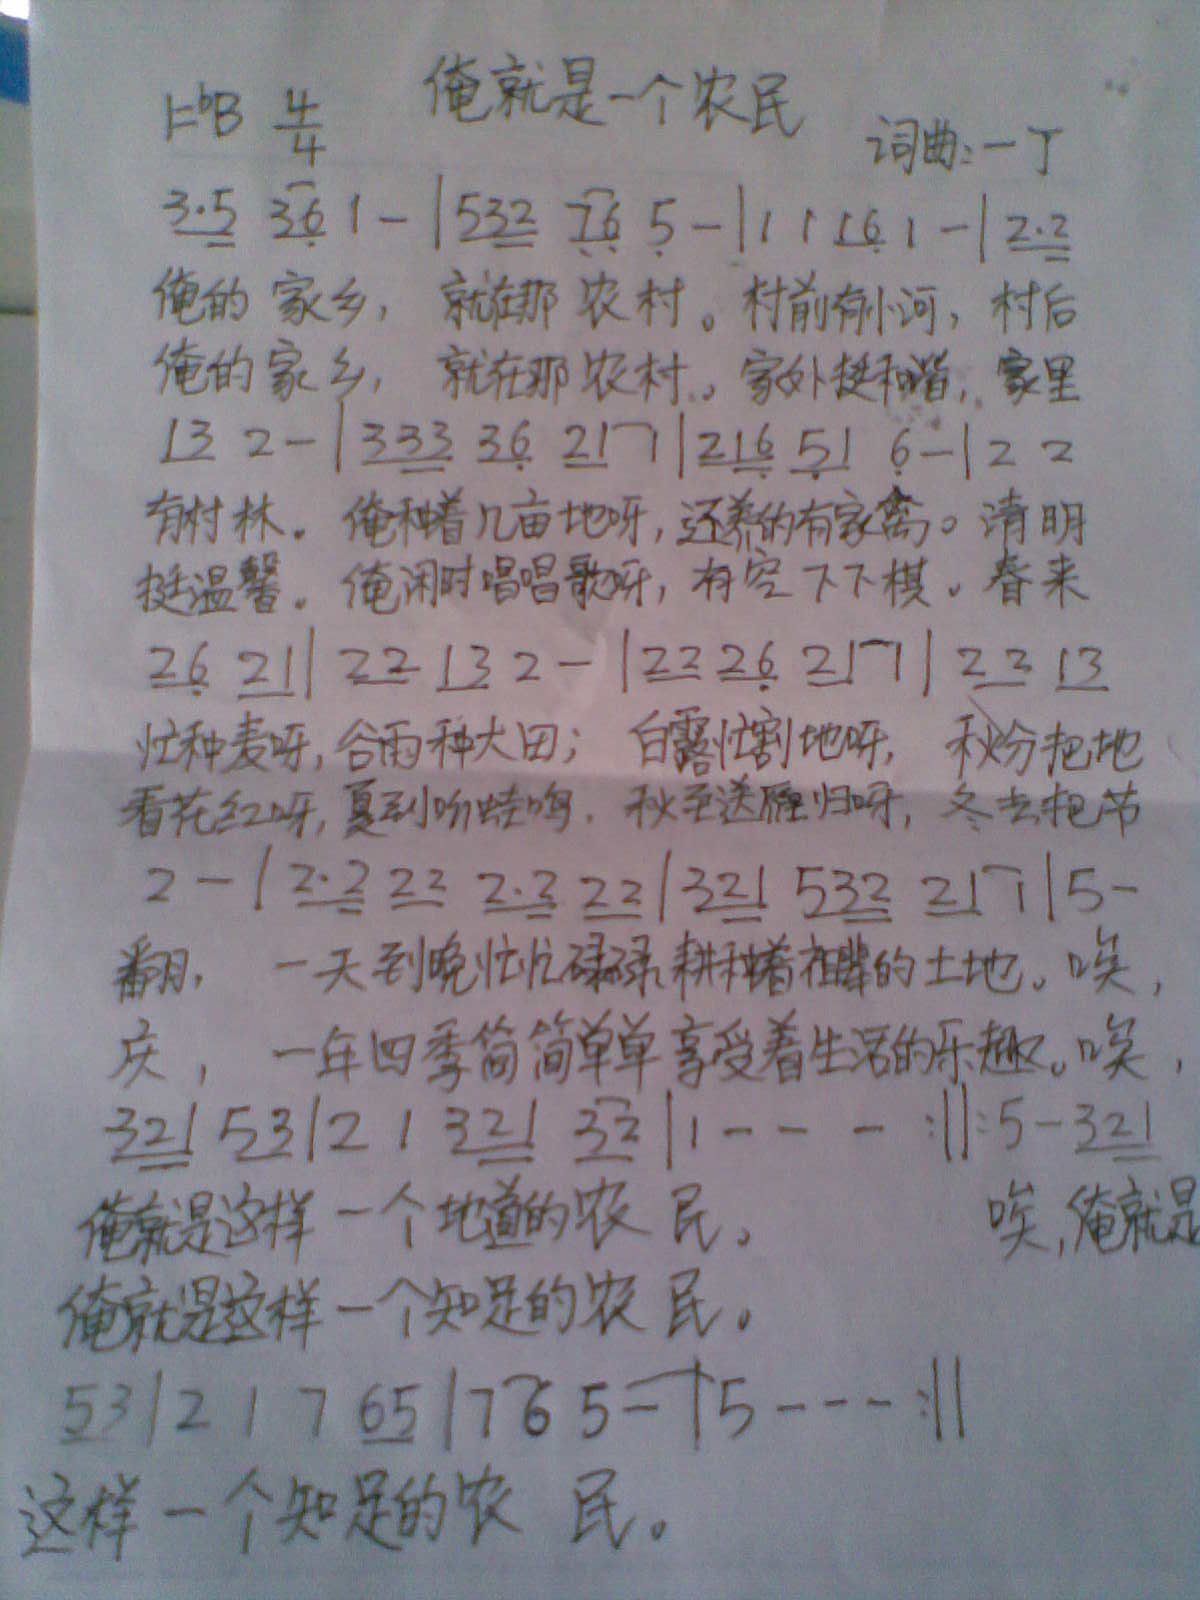 俺就是一个农民
1=bB 4/4
词曲:一丁
3·5 36 1 - | 532 76 5 - | 1 1 16 1 - | 2·2
俺的家乡, 就在那农村。村前有小河, 村后
俺的家乡, 就在那农村。家外挺和谐, 家里
13 2 - | 333 36 21 1 | 216 51 6 - | 2 2
有村林。俺种着几亩地呀, 还养的有家禽。清明
挺温馨。俺闲时唱唱歌呀, 有空下下棋。春来
26 21 | 22 13 2 - | 22 26 21 1 | 22 13
忙种麦呀, 谷雨种大田; 白露忙割地呀, 秋分把地
看花红呀, 夏到听蛙鸣. 秋至送雁归呀, 冬去把节
2 - | 2·2 22 2·2 22 | 321 532 21 1 | 5 -
翻, 一天到晚忙忙碌碌, 耕种着祖辈的土地。唉,
庆, 一年四季简简单单享受着生活的乐趣。唉,
321 53 | 2 1 321 32 | 1 - - - :||: 5 - 321
俺就是这样一个地道的农民。 唉, 俺就是
俺就是这样一个知足的农民。
53 | 2 1 7 65 | 7 6 5 - | 5 - - - :||
这样一个知足的农民。